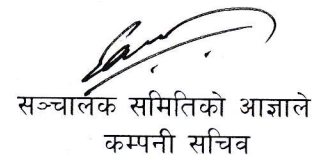 सञ्चालक समितिको आज्ञाले
कम्पनी सचिव